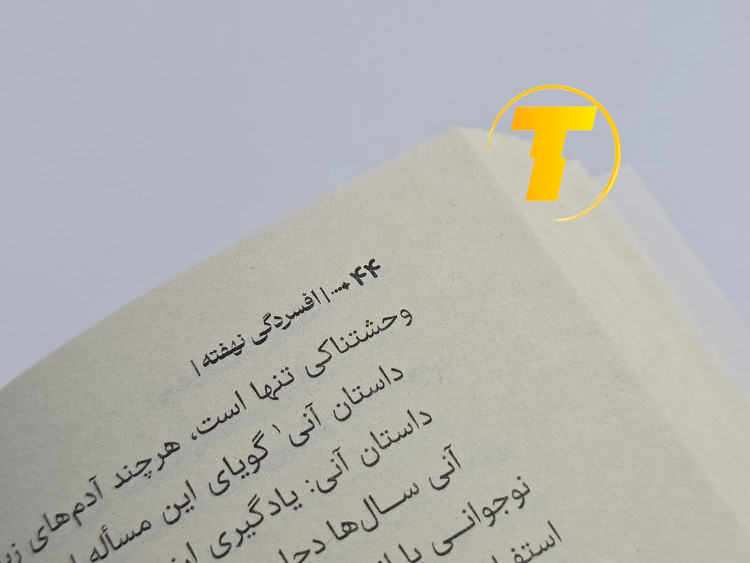 ۴۴ ... | افسردگی نهفته |
وحشتناکی تنها است، هرچند آدم‌های
داستان آنی۱ گویای این مسأله
داستان آنی: یادگیری
آنی سال‌ها
نوجوانی با
T